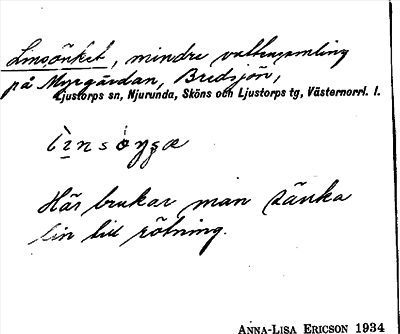 Linsönket, mindre vattensamling
på Myrgärdan, Bredsjön,
Ljustorps sn, Njurunda, Sköns och Ljustorps tg, Västernorrl. l.
Här brukar man sänka
lin till rötning.
ANNA-LISA ERICSON 1934